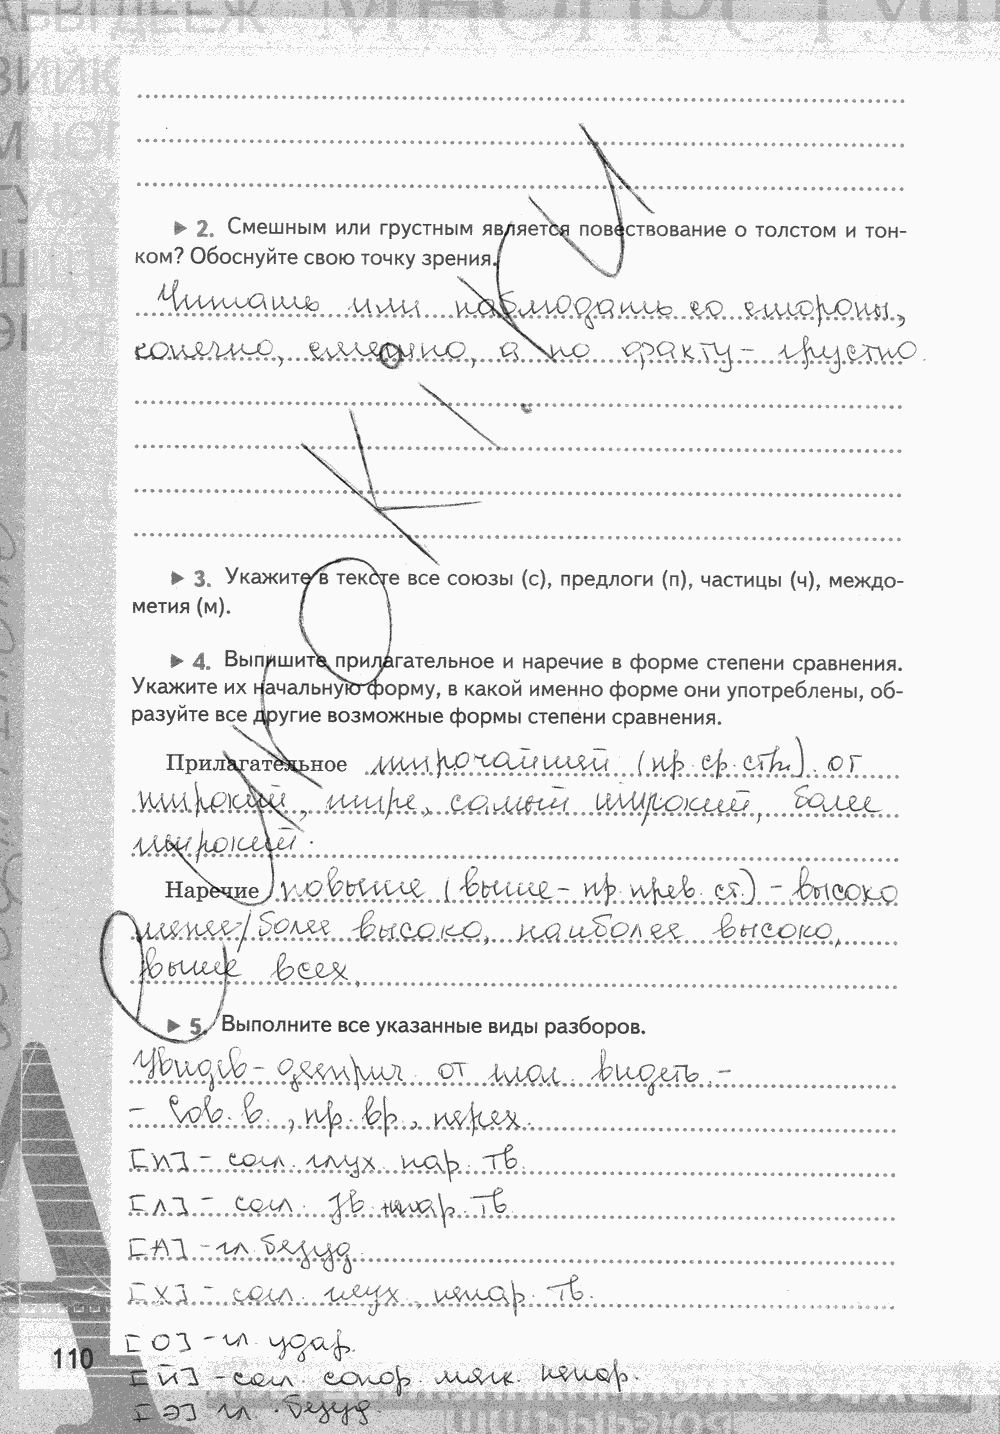 2. Смешным или грустным является повествование о толстом и тон-
ком? Обоснуйте свою точку зрения.
Читать или наблюдать со стороны,
конечно, смешно, а по факту - грустно.
3. Укажите в тексте все союзы (с), предлоги (п), частицы (ч), междо-
метия (м).
4. Выпишите прилагательное и наречие в форме степени сравнения.
Укажите их начальную форму, в какой именно форме они употреблены, об-
разуйте все другие возможные формы степени сравнения.
Прилагательное широчайшей (пр. ср. ) от
широкий, шире, самый широкий, более
широкий.
Наречие повыше (выше - пр. прев. ст.) - высоко
менее/более высоко, наиболее высоко,
выше всех.
5. Выполните все указанные виды разборов.
Увидев - дееприч. от глаг. видеть -
- Сов. в., пр. вр., перех.
[П] - согл. глух. пар. тв.
[Л] - согл. зв. непар. тв.
[А] - гл. безуд.
[Х] - согл. глух. непар. тв.
[О] - гл. удар.
110
[Й] - согл. сонор. мягк. непар.
[Э] гл. безуд.
Yroki.ru